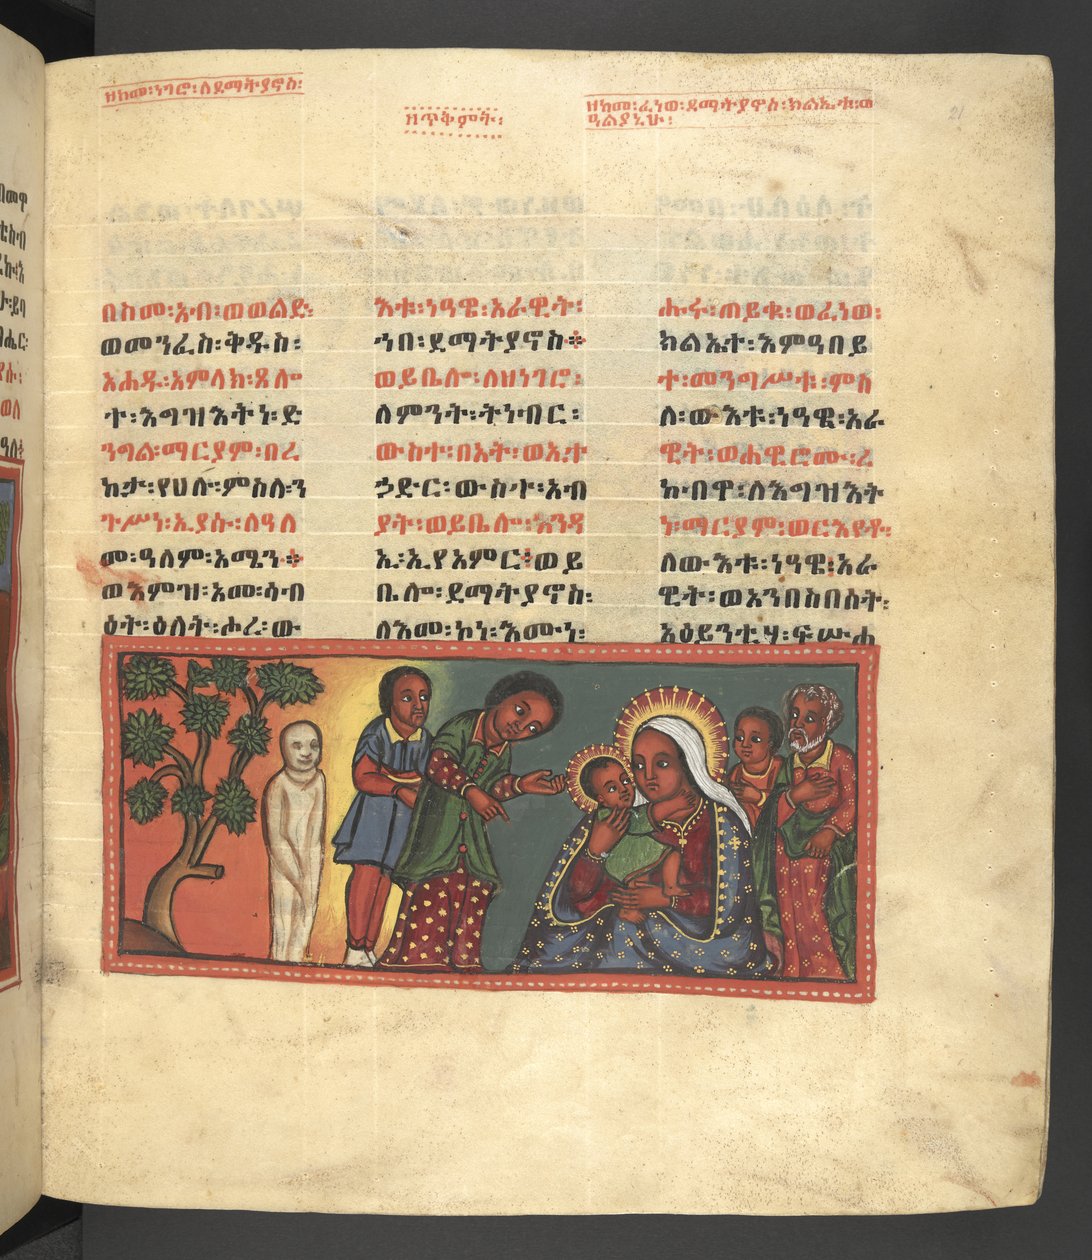 ዘከመ፡ነገሮ፡ለደማትያኖስ፡
ዘጥቅምት፡
ዘከመ፡ፈነወ፡ደማትያኖስ፡ክልኤቱ፡መ
ዓልያኒሁ፡
21
በስመ፡አብ፡ወወልድ፡
ወመንፈስ፡ቅዱስ፡
አሐዱ፡አምላክ፡ጸሎ
ተ፡እግዝእትነ፡ድ
ንግል፡ማርያም፡በረ
ከታ፡የሀሉ፡ምስለ፡ን
ጉሥነ፡ኢያሱ፡ለዓለ
መ፡ዓለም፡አሜን፨
ወእምዝ፡አመ፡ሳብ
ዕት፡ዕለት፡ሖረ፡ው
እቱ፡ነዓዊ፡አራዊት፡
ኀበ፡ደማትያኖስ፨
ወይቤሎ፡ለዘነገሮ፡
ለምንት፡ትነብር፡
ውስተ፡በአት፡ወኢተ
ኃድር፡ውስተ፡አብ
ያት፡ወይቤሎ፡እንዳ
ኢ፡ኢየአምር፡ወይ
ቤሎ፡ደማትያኖስ፡
ለእመ፡ኮነ፡እሙነ፡
ሑሩ፡ጠይቁ፡ወፈነወ፡
ክልኤተ፡እምዓበይ
ተ፡መንግሥቱ፡ምስ
ለ፡ውእቱ፡ነዓዊ፡አራ
ዊት፡ወሐዊሮሙ፡ረ
ከብዋ፡ለእግዝእት
ነ፡ማርያም፡ወርእየቶ፡
ለውእቱ፡ነዓዊ፡አራ
ዊት፡ወአንበስበስት፡
አዕይንቲሃ፡ፍሡሐ